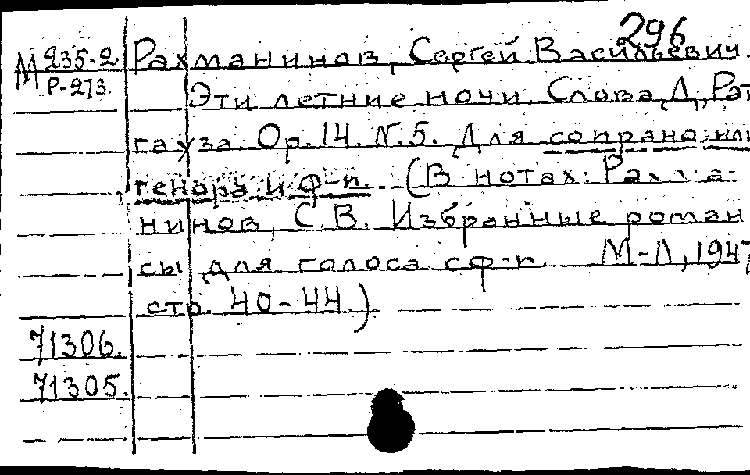 296
М 235-2 Рахманинов, Сергей Васильевич.
Р-273. Эти летние ночи. Слова Д. Рат
гауза. Ор. 14. N. 5. Для сопрано или
тенора и ф-п. (В нотах: Рахма-
нинов, С. В. Избранные роман
сы для голоса с ф-п. М-Л, 1947
стр. 40-44.)
71306.
71305.